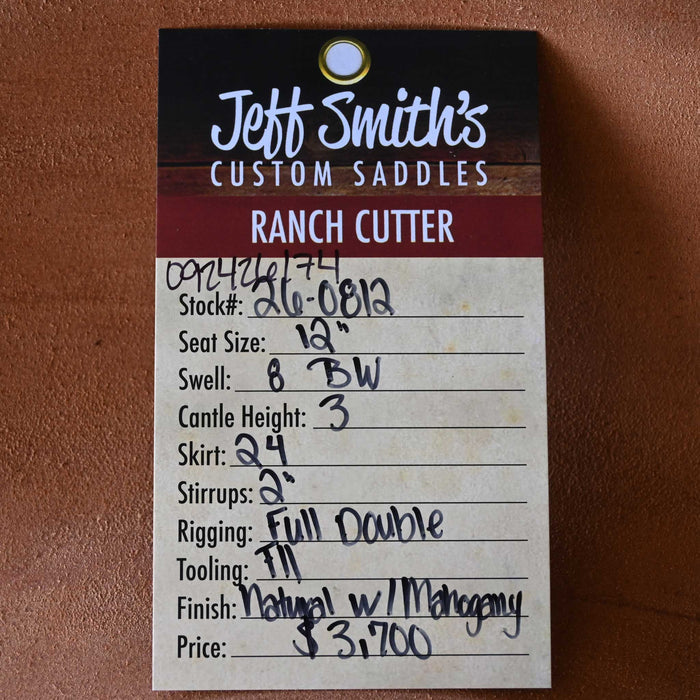 Jeff Smith's
CUSTOM SADDLES
RANCH CUTTER
092426174
Stock#: 26-0812
Seat Size: 12"
Swell: 8 BW
Cantle Height: 3
Skirt: 24
Stirrups: 2"
Rigging: Full Double
Tooling:
Finish: Natural w/ Mahogany
Price: $3,700